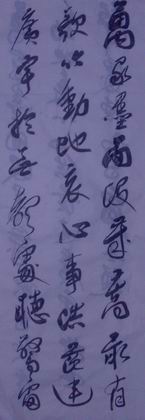 萬家墨面沒蒿萊敢有
歌吟動地哀心事浩茫連
廣宇於無聲處聽驚雷